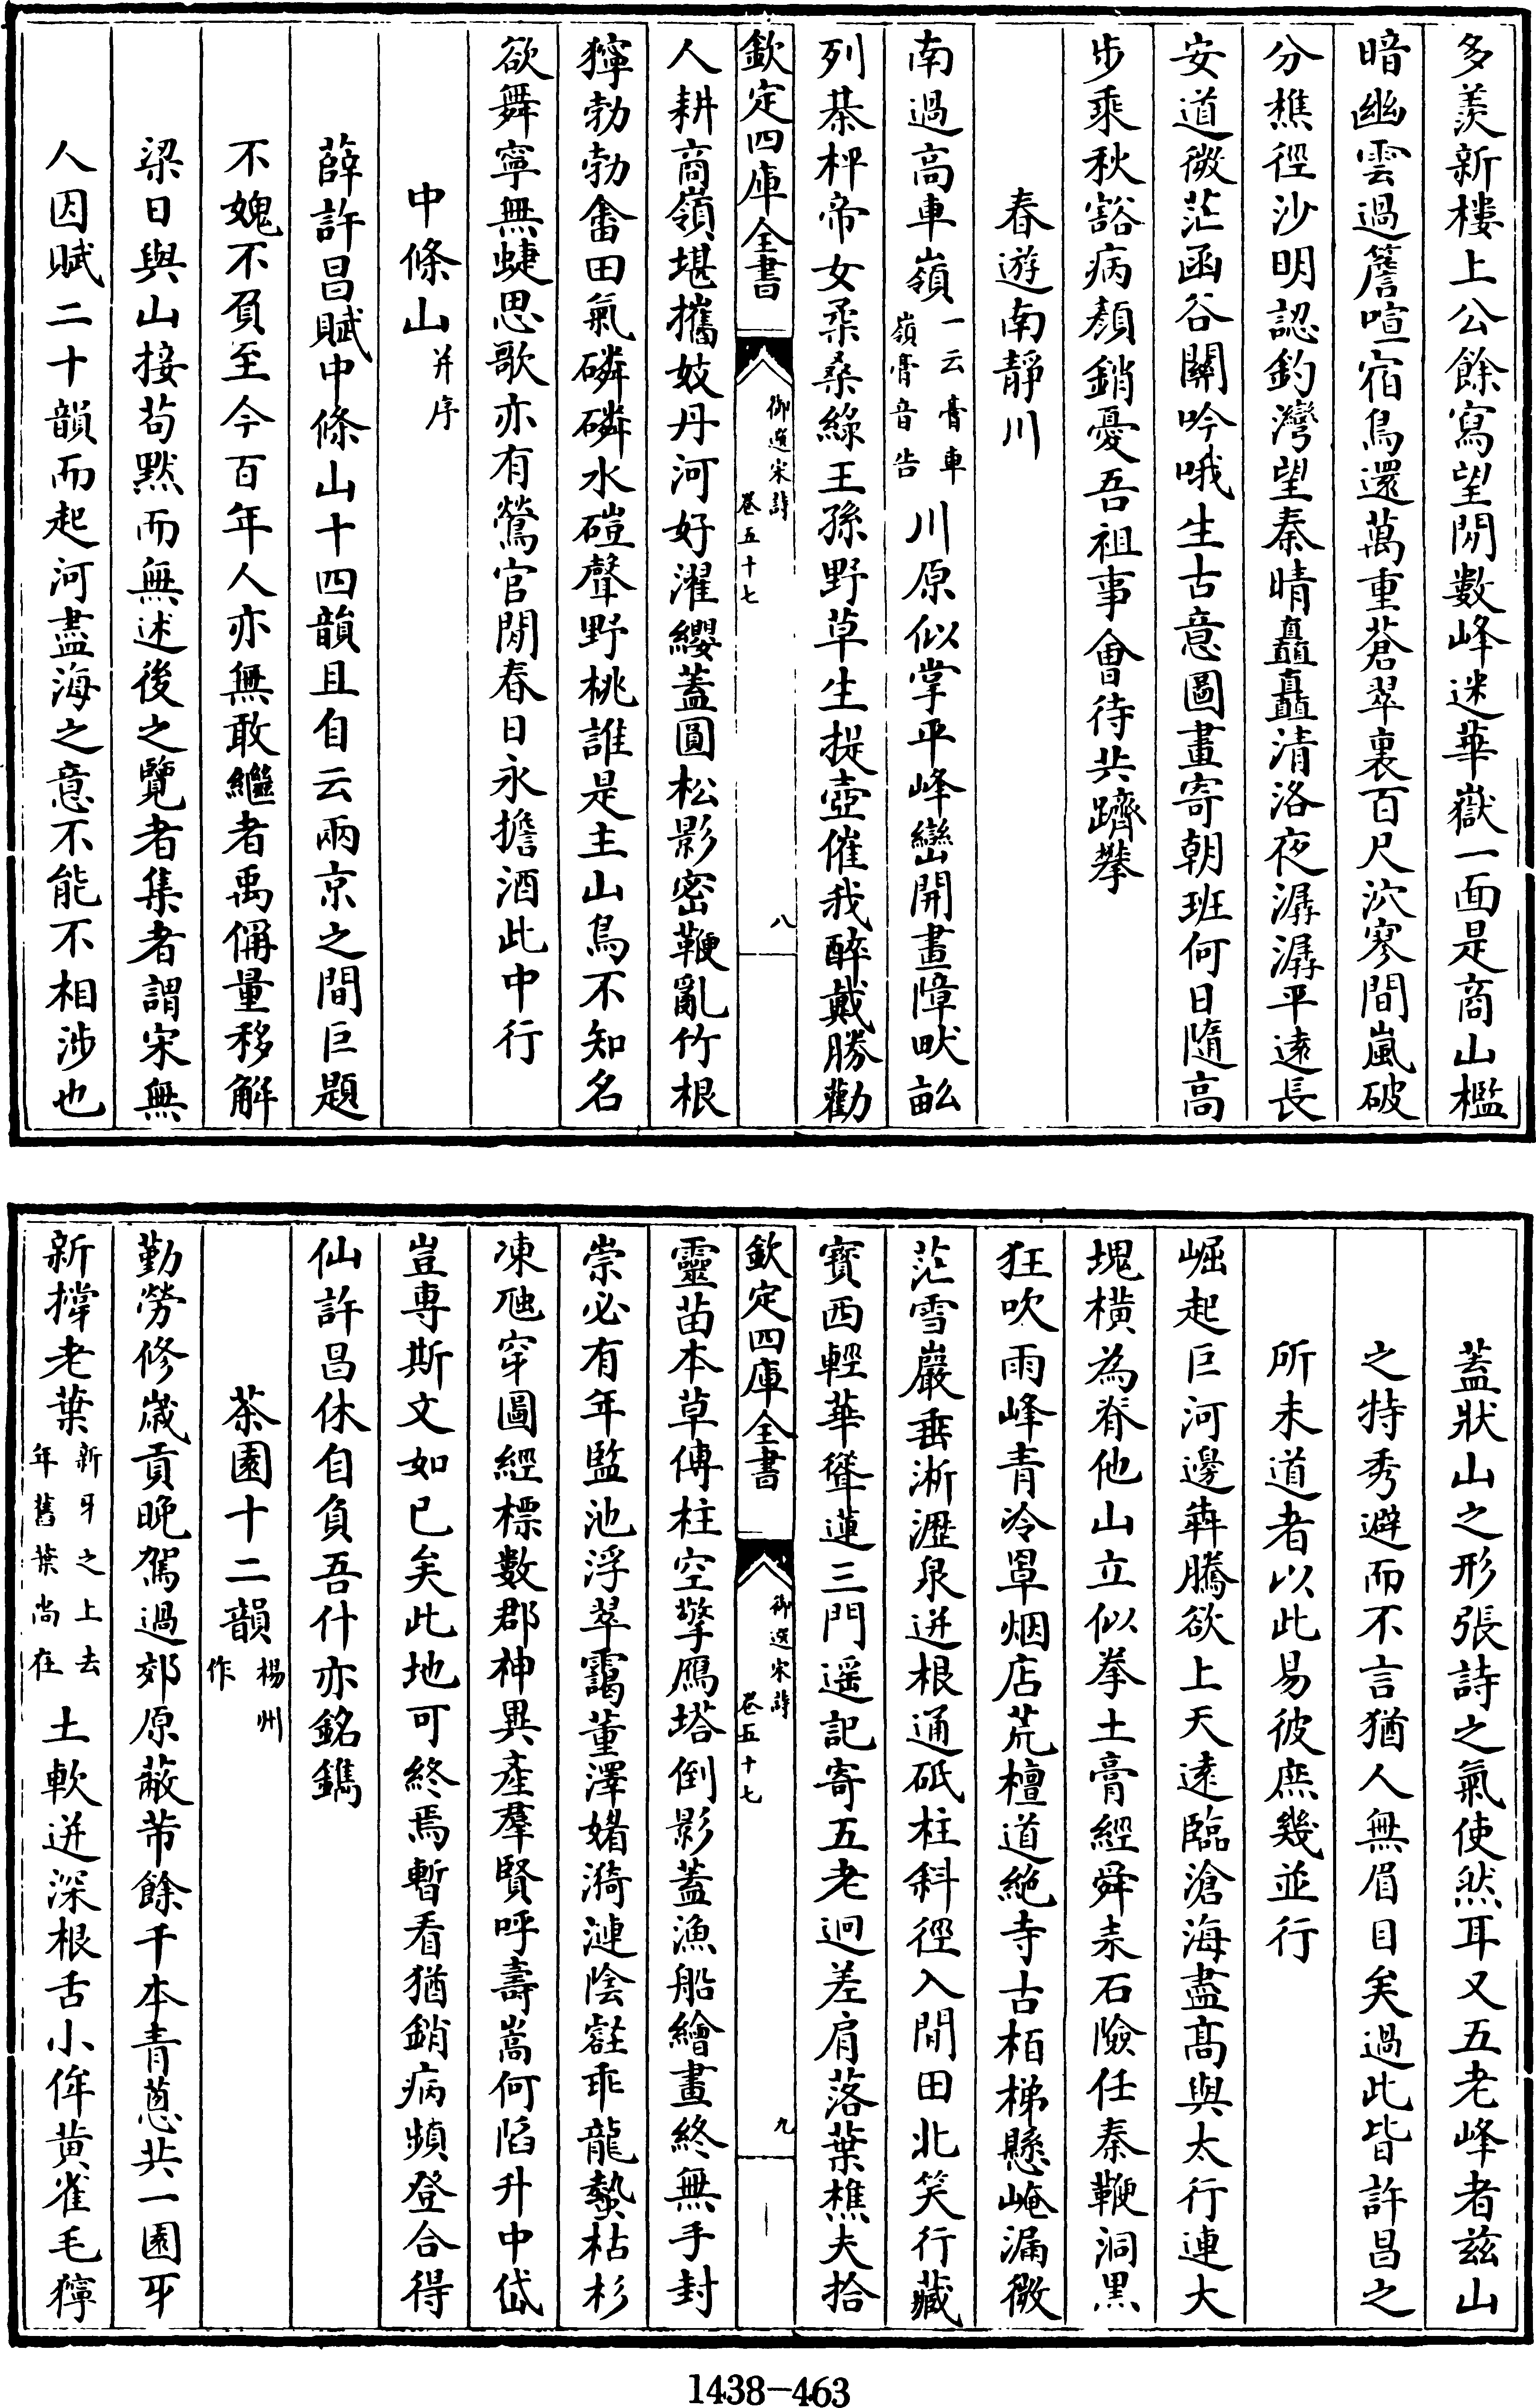 多羨新樓上公餘寫望閒數峰迷華嶽一面是商山檻
暗幽雲過簷喧宿鳥還萬重蒼翠裏百尺泬寥間嵐破
分樵徑沙明認釣灣望秦晴矗矗清洛夜潺潺平遠長
安道微茫函谷關吟哦生古意圖畫寄朝班何日隨高
步乘秋豁病顏銷憂吾祖事會待共躋攀
春遊南靜川
南過高車嶺
一云膏車
嶺膏音告
川原似掌平峰巒開畫障畎畝
列棊枰帝女柔桑綠王孫野草生提壺催我醉戴勝勸
欽定四庫全書
御選宋詩
卷五十七
八
人耕商嶺堪攜妓丹河好濯纓蓋圓松影密鞭亂竹根
獰勃勃畬田氣磷磷水磑聲野桃誰是主山鳥不知名
欲舞寧無蜨思歌亦有鶯官閒春日永擔酒此中行
中條山
并序
薛許昌賦中條山十四韻且自云兩京之間巨題
不媿不負至今百年人亦無敢繼者禹偁量移解
梁日與山接苟默而無述後之覽者集者謂宋無
人因賦二十韻而起河盡海之意不能不相涉也
蓋狀山之形張詩之氣使然耳又五老峰者茲山
之特秀避而不言猶人無眉目矣過此皆許昌之
所未道者以此易彼庶幾並行
崛起巨河邊犇騰欲上天遠臨滄海盡高與太行連大
塊橫為脊他山立似拳土膏經舜耒石險任秦鞭洞黑
狂吹雨峰青冷罩烟店荒檀道絶寺古栢梯懸崦漏微
茫雪巖垂淅瀝泉迸根通砥柱斜徑入閒田北笑行藏
寳西輕華聳蓮三門遥記寄五老迥差肩落葉樵夫拾
欽定四庫全書
御選宋詩
卷五十七
九
靈苗本草傳柱空擎鴈塔倒影蓋漁船繪畫終無手封
崇必有年監池浮翠靄董澤媎漪漣陰壑乖龍蟄枯杉
凍虺穿圖經標數郡神異產羣賢呼壽嵩何陷升中岱
豈專斯文如已矣此地可終焉暫看猶銷病頻登合得
仙許昌休自負吾什亦銘鐫
茶園十二韻
楊州
作
勤勞修歲貢晚駕過郊原蔽芾餘千本青蔥共一園牙
新撐老葉
新牙之上去
年舊葉尚在
土軟迸深根舌小侔黄雀毛獰
1438-463